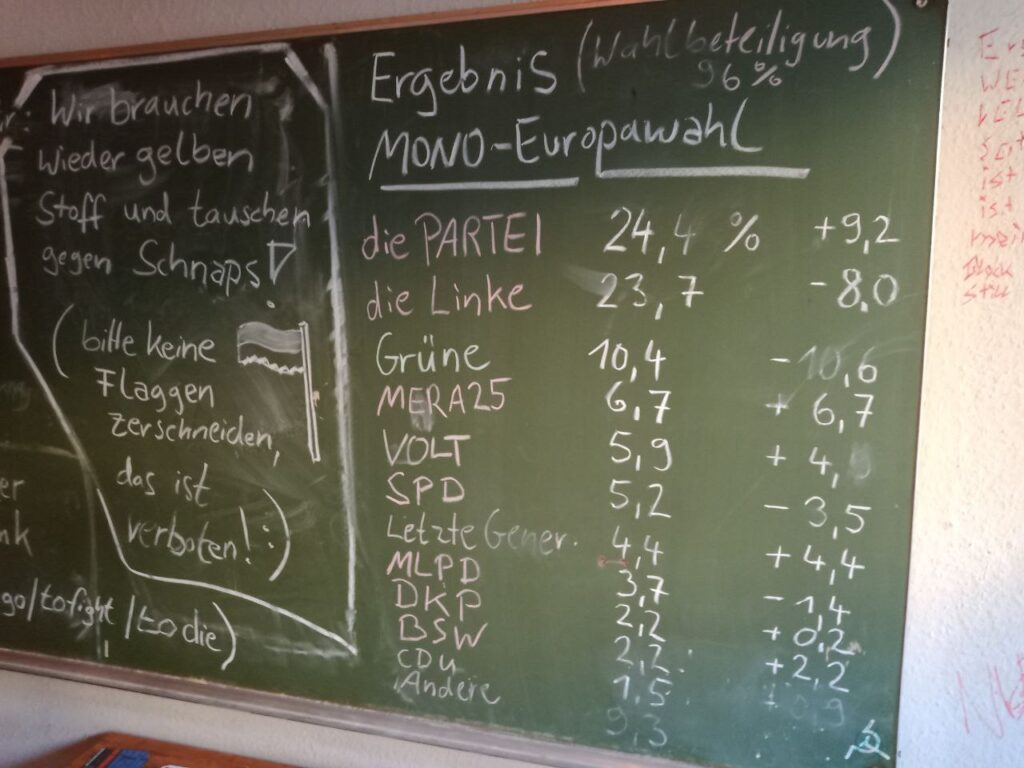 Wir brauchen
wieder gelben
Stoff und tauschen
gegen Schnaps!
(bitte keine
Flaggen
zerschneiden,
das ist
verboten! :)
go/to fight/to die)
Ergebnis (Wahlbeteiligung)
96%
MONO-Europawahl
die PARTEI 24,4 % +9,2
die Linke 23,7 -8,0
Grüne 10,4 -10,6
MERA25 6,7 +6,7
VOLT 5,9 +4,
SPD 5,2 -3,5
Letzte Gener. 4,4 +4,4
MLPD 3,7 -1,4
DKP 2,2 +0,2
BSW 2,2 +2,2
CDU 1,5 0,9
Andere 9,3
ist
ist
Block
still